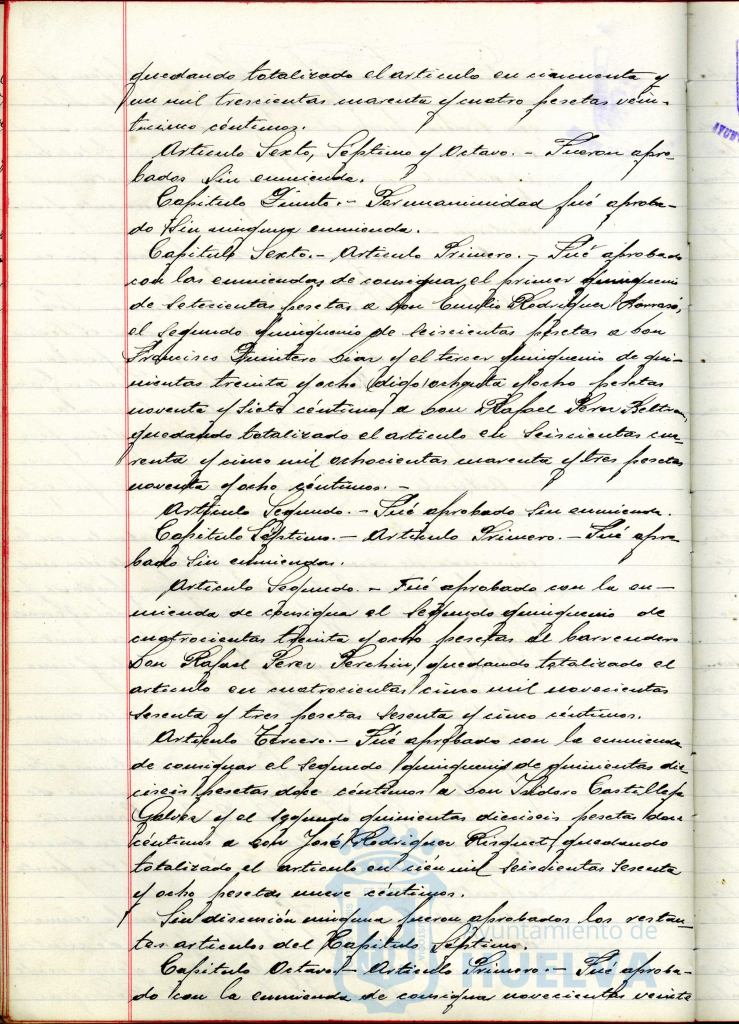 quedando totalizado el articulo en cincuenta y
un mil trescientas cuarenta y cuatro pesetas vein-
ticinco céntimos.
Articulo Sexto, Séptimo y Octavo. - Fueron apro-
bados sin enmienda.
Capitulo Quinto. - fué aproba-
do sin ninguna enmienda.
Capitulo Sexto. - Articulo Primero. - Fué aprobado
con las enmiendas de consignar el primer quinquenio
de setecientas pesetas a Don Emilio Rodriguez
el segundo quinquenio de seiscientas pesetas a Don
Francisco Quintero Diaz y el tercer quinquenio de qui-
nientas treinta y ocho digo ochenta y ocho pesetas
noventa y siete céntimos a Don Rafael Perez Beltran,
quedando totalizado el articulo en seiscientas cua-
renta y cinco mil ochocientas cuarenta y tres pesetas
noventa y ocho céntimos. -
Articulo Segundo. - Fué aprobado sin enmienda.
Capitulo Séptimo. - Articulo Primero. - Fué apro-
bado sin enmiendas.
Articulo Segundo. - Fué aprobado con la en-
mienda de consignar el segundo quinquenio de
cuatrocientas treinta y ocho pesetas al barrendero
Don Rafael Perez quedando totalizado el
articulo en cuatrocientas cinco mil novecientas
sesenta y tres pesetas sesenta y cinco céntimos.
Articulo Tercero. - Fué aprobado con la enmienda
de consignar el segundo quinquenio de quinientas die-
ciseis pesetas doce céntimos a Don Isidoro Castilleja
Galvez y el segundo quinientas dieciseis pesetas doce
céntimos a Don José Rodriguez Risquet, quedando
totalizado, el articulo en cien mil seiscientas sesenta
y ocho pesetas nueve céntimos.
Sin discusión ninguna fueron aprobados los restan-
tes articulos del Capitulo Séptimo.
Capitulo Octavo - Articulo Primero. - Fué aproba-
do con la enmienda de consignar novecientas veinte
Ayuntamiento de
HUELVA